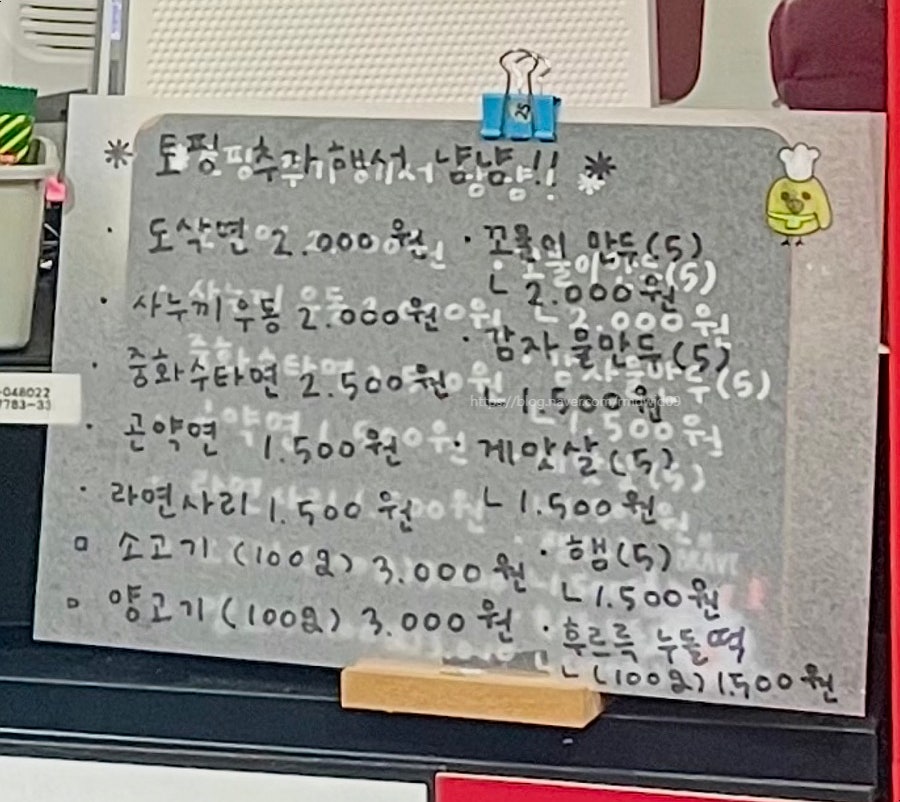 * 토핑추가해서 냠냠!! *
· 도삭면 2.000원
· 사누끼우동 2.000원
· 중화수타면 2.500원
· 곤약면 1.500원
· 라면사리 1.500원
▫ 소고기 (100g) 3.000원
▫ 양고기 (100g) 3.000원
· 꼬물이 만두(5)
ㄴ 2.000원
· 감자물만두(5)
ㄴ 1.500원
· 게맛살(5)
ㄴ 1.500원
· 햄(5)
ㄴ 1.500원
· 후르륵 누들떡
ㄴ (100g) 1.500원
-048022
7783-33